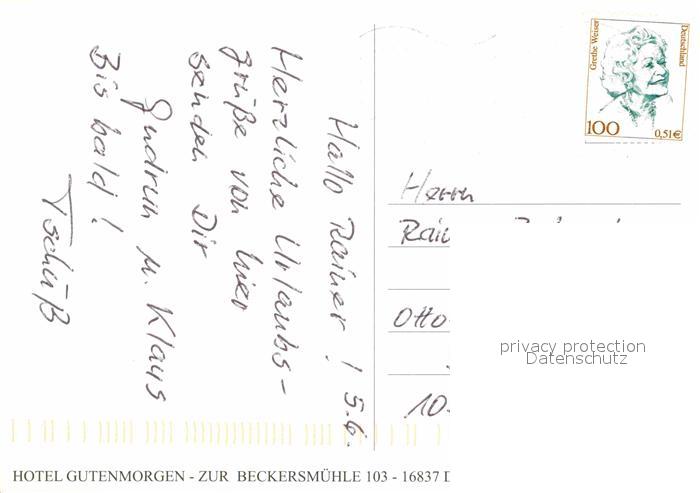 Hallo Rainer! 5.6.
Herzliche Urlaubs-
grüße von hier
senden Dir
Gudrun u. Klaus
Bis bald!
Tschüß
Grethe Weiser
Deutschland
100
0,51€
Herrn
Otto
10
privacy protection
Datenschutz
HOTEL GUTENMORGEN - ZUR BECKERSMÜHLE 103 - 16837 D